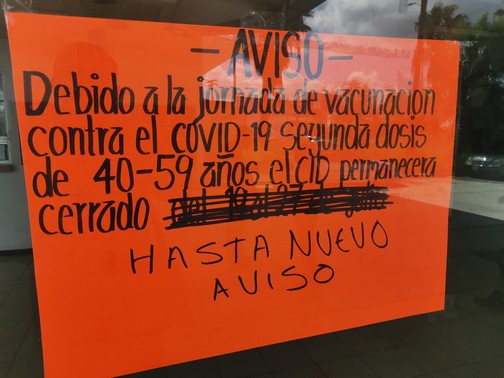 - AVISO -
Debido a la jornada de vacunacion
contra el COVID-19 segunda dosis
de 40-59 años el CID permanecera
cerrado del 19 al 27 de julio
HASTA NUEVO
AVISO